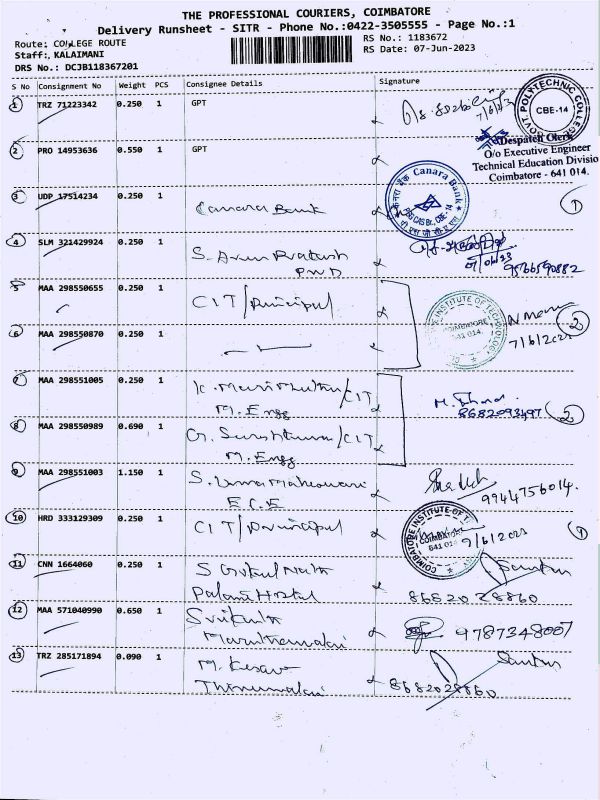 THE PROFESSIONAL COURIERS, COIMBATORE
Delivery Runsheet - SITR - Phone No.:0422-3505555 - Page No.:1
Route: COLLEGE ROUTE
RS No.: 1183672
Staff: KALAIMANI
RS Date: 07-Jun-2023
DRS No.: DCJB118367201
S No Consignment No Weight PCS Consignee Details Signature
1 TRZ 71223342 0.250 1 GPT
7/6/23
GOVT. POLYTECHNIC COLLEGE
CBE-14
Despatch Clerk
O/o Executive Engineer
Technical Education Divisio
Coimbatore - 641 014.
2 PRO 14953636 0.550 1 GPT
3 UDP 17514234 0.250 1 Canara Bank
Canara Bank
CBE-14
1
4 SLM 321429924 0.250 1 S. Arun Prakash
PWD
9566590882
5 MAA 298550655 0.250 1 CIT/Principal
INSTITUTE OF TECHNOLOGY
COIMBATORE
641 014.
7/6/2023
2
6 MAA 298550870 0.250 1
7 MAA 298551005 0.250 1 K. Marimuthu/CIT
M. Engg
8682093497
2
8 MAA 298550989 0.690 1 /CIT
M. Engg
9 MAA 298551003 1.150 1 S. Uma Maheswari
E.C.E
9944756014.
10 HRD 333129309 0.250 1 CIT/Principal
COIMBATORE INSTITUTE OF
COIMBATORE
641 014
7/6/2023
1
11 CNN 1664060 0.250 1 S Gokul Nath
Palani Hostel
8682028860
12 MAA 571040990 0.650 1
9787348007
13 TRZ 285171894 0.090 1 M. Kesav
Thirumalai
8682028860